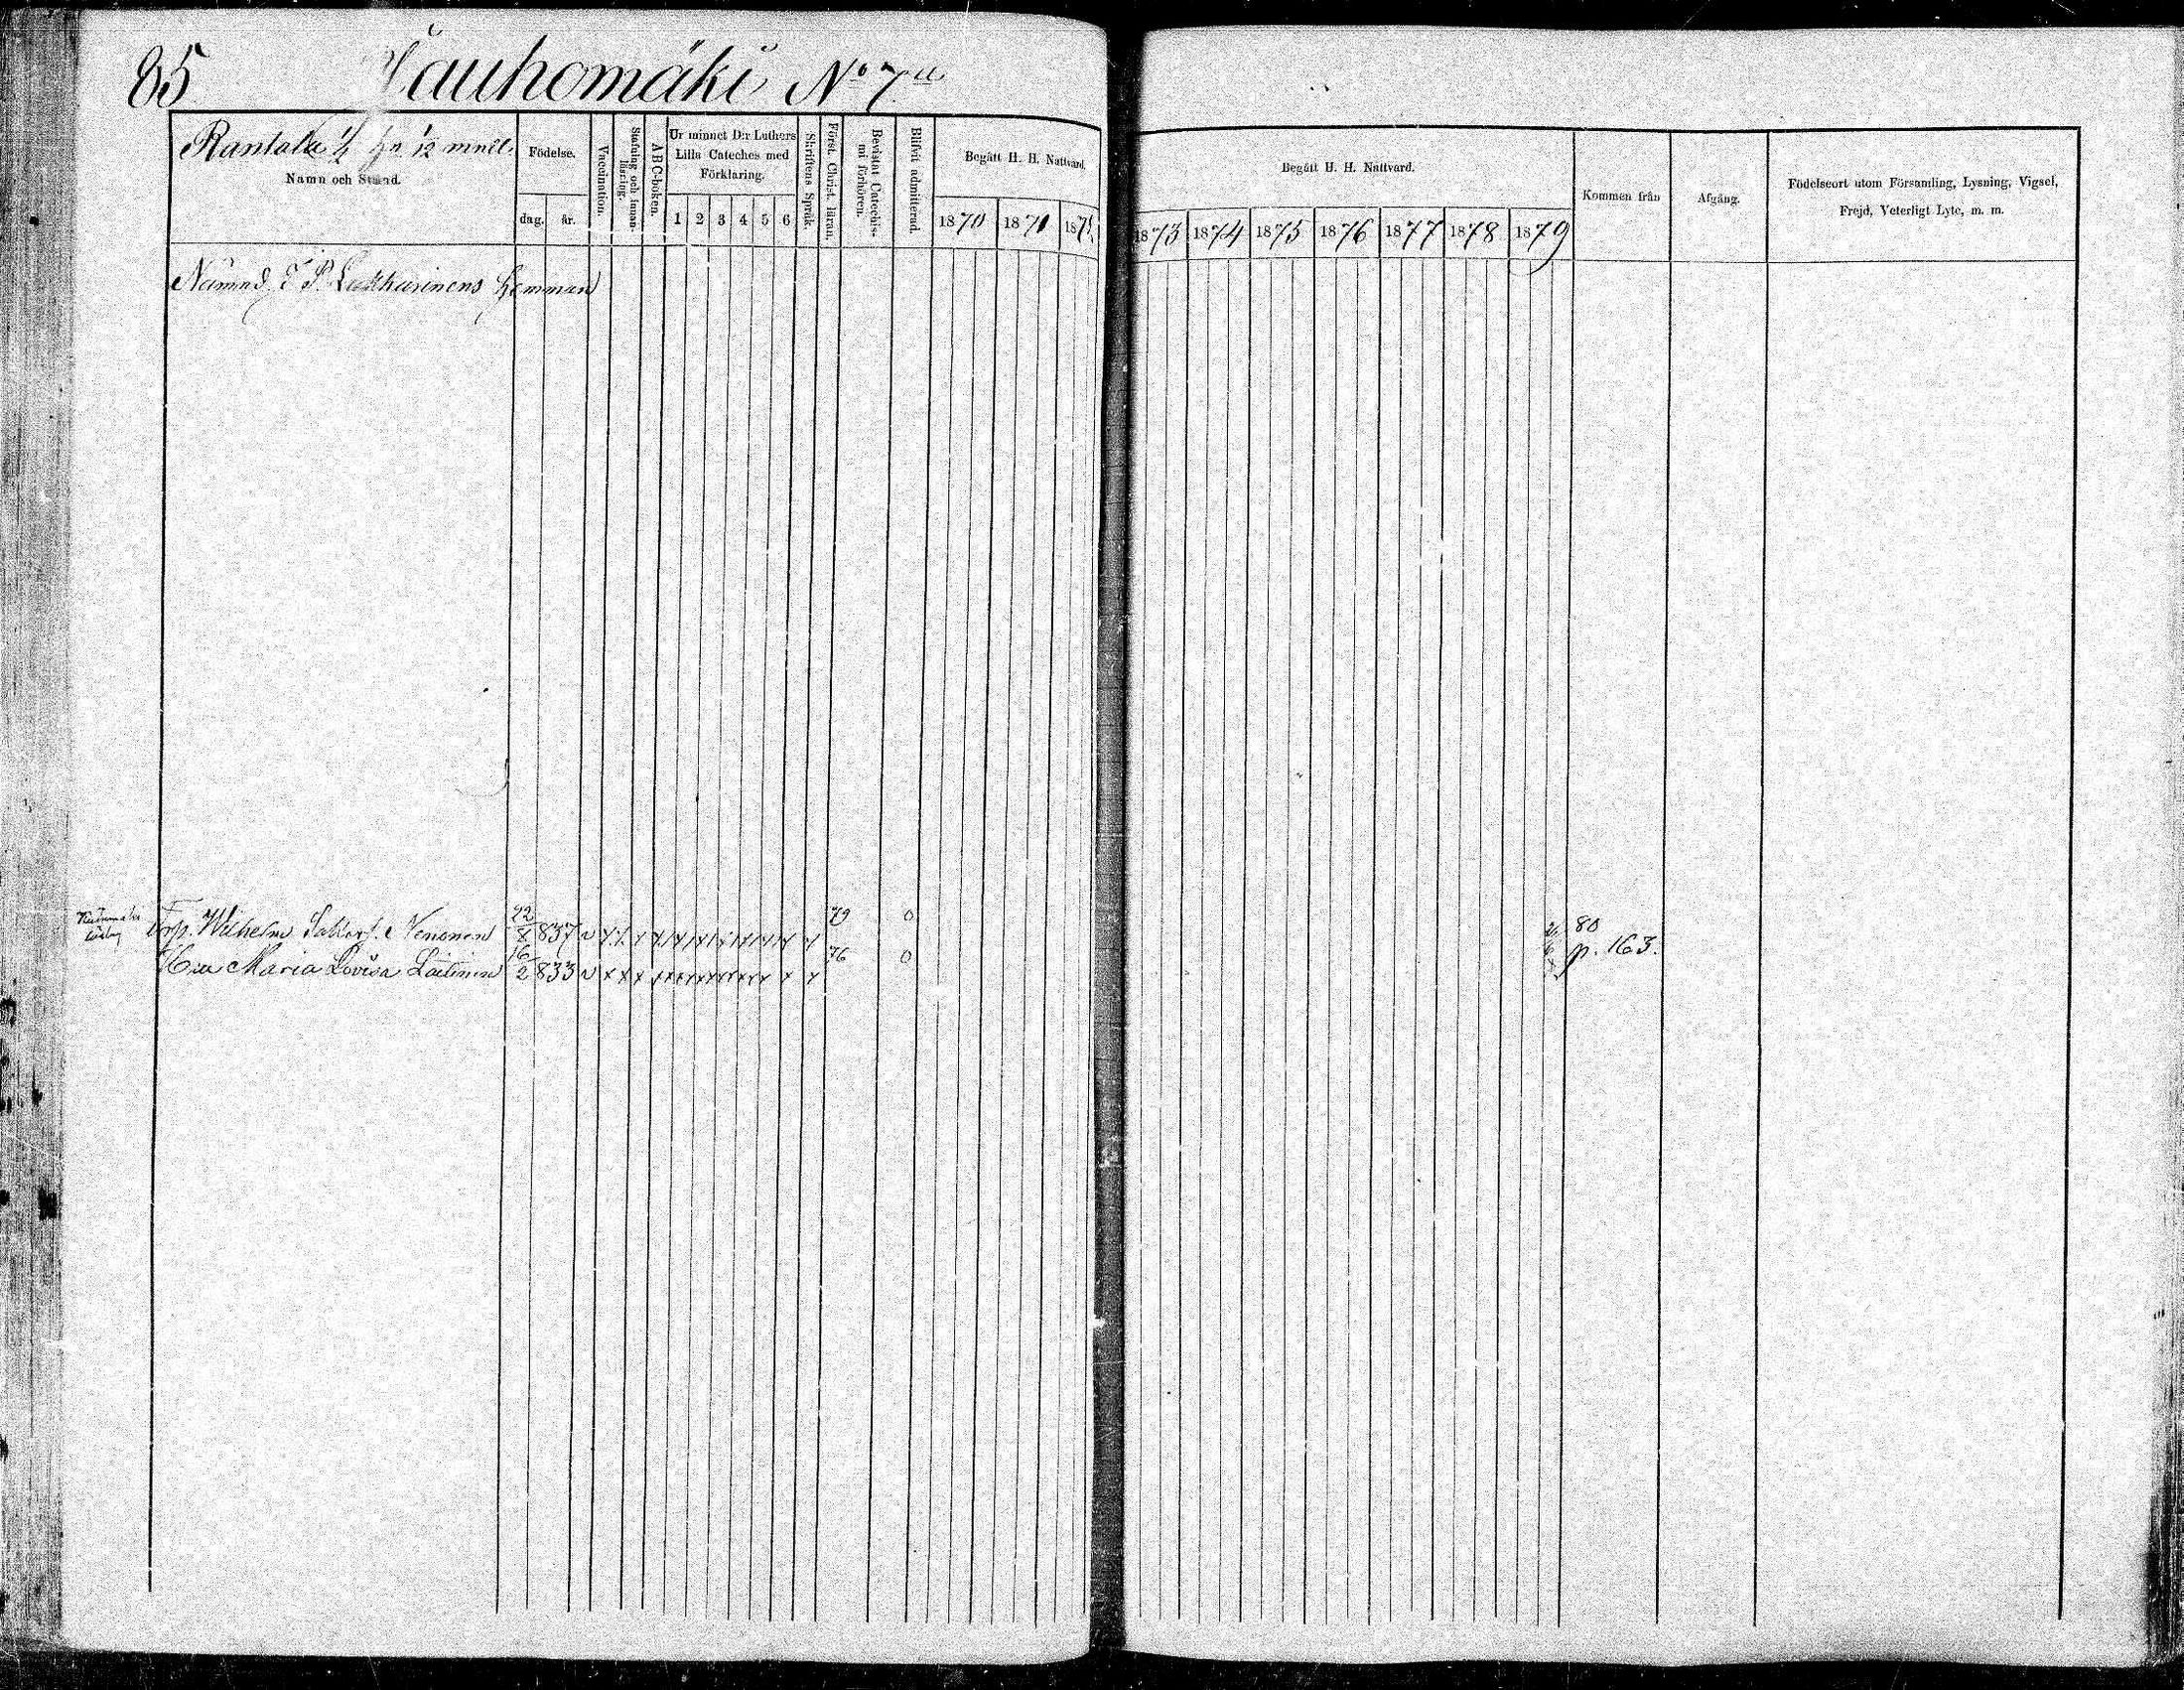 85 Jauhomäki No 7
Rantala 1/12 mntl.
Namn och Stånd.
Födelse.
dag. år.
Vaccination.
Stafning och innanläsning.
ABC-boken.
Ur minnet D:r Luthers
Lilla Cateches med
Förklaring.
1 2 3 4 5 6
Skriftens Språk.
Först. Christ. läran.
Bevistat Catechismi förhören.
Blifvit admitterad.
Begått H. H. Nattvard.
1870 1871 187
Begått H. H. Nattvard.
1873 1874 1875 1876 1877 1878 1879
Kommen från
Afgång.
Födelseort utom Församling, Lysning, Vigsel,
Frejd, Veterligt Lyte, m. m.
Nämnd. P. Hemman
Torp. Wilhelm Nenonen 22/8 837 v x x x x x x x x x x x 79 0 80
Hu Maria Lovisa Laitinen 16/2 833 v x x x x x x x x x x x 76 0 p. 163.